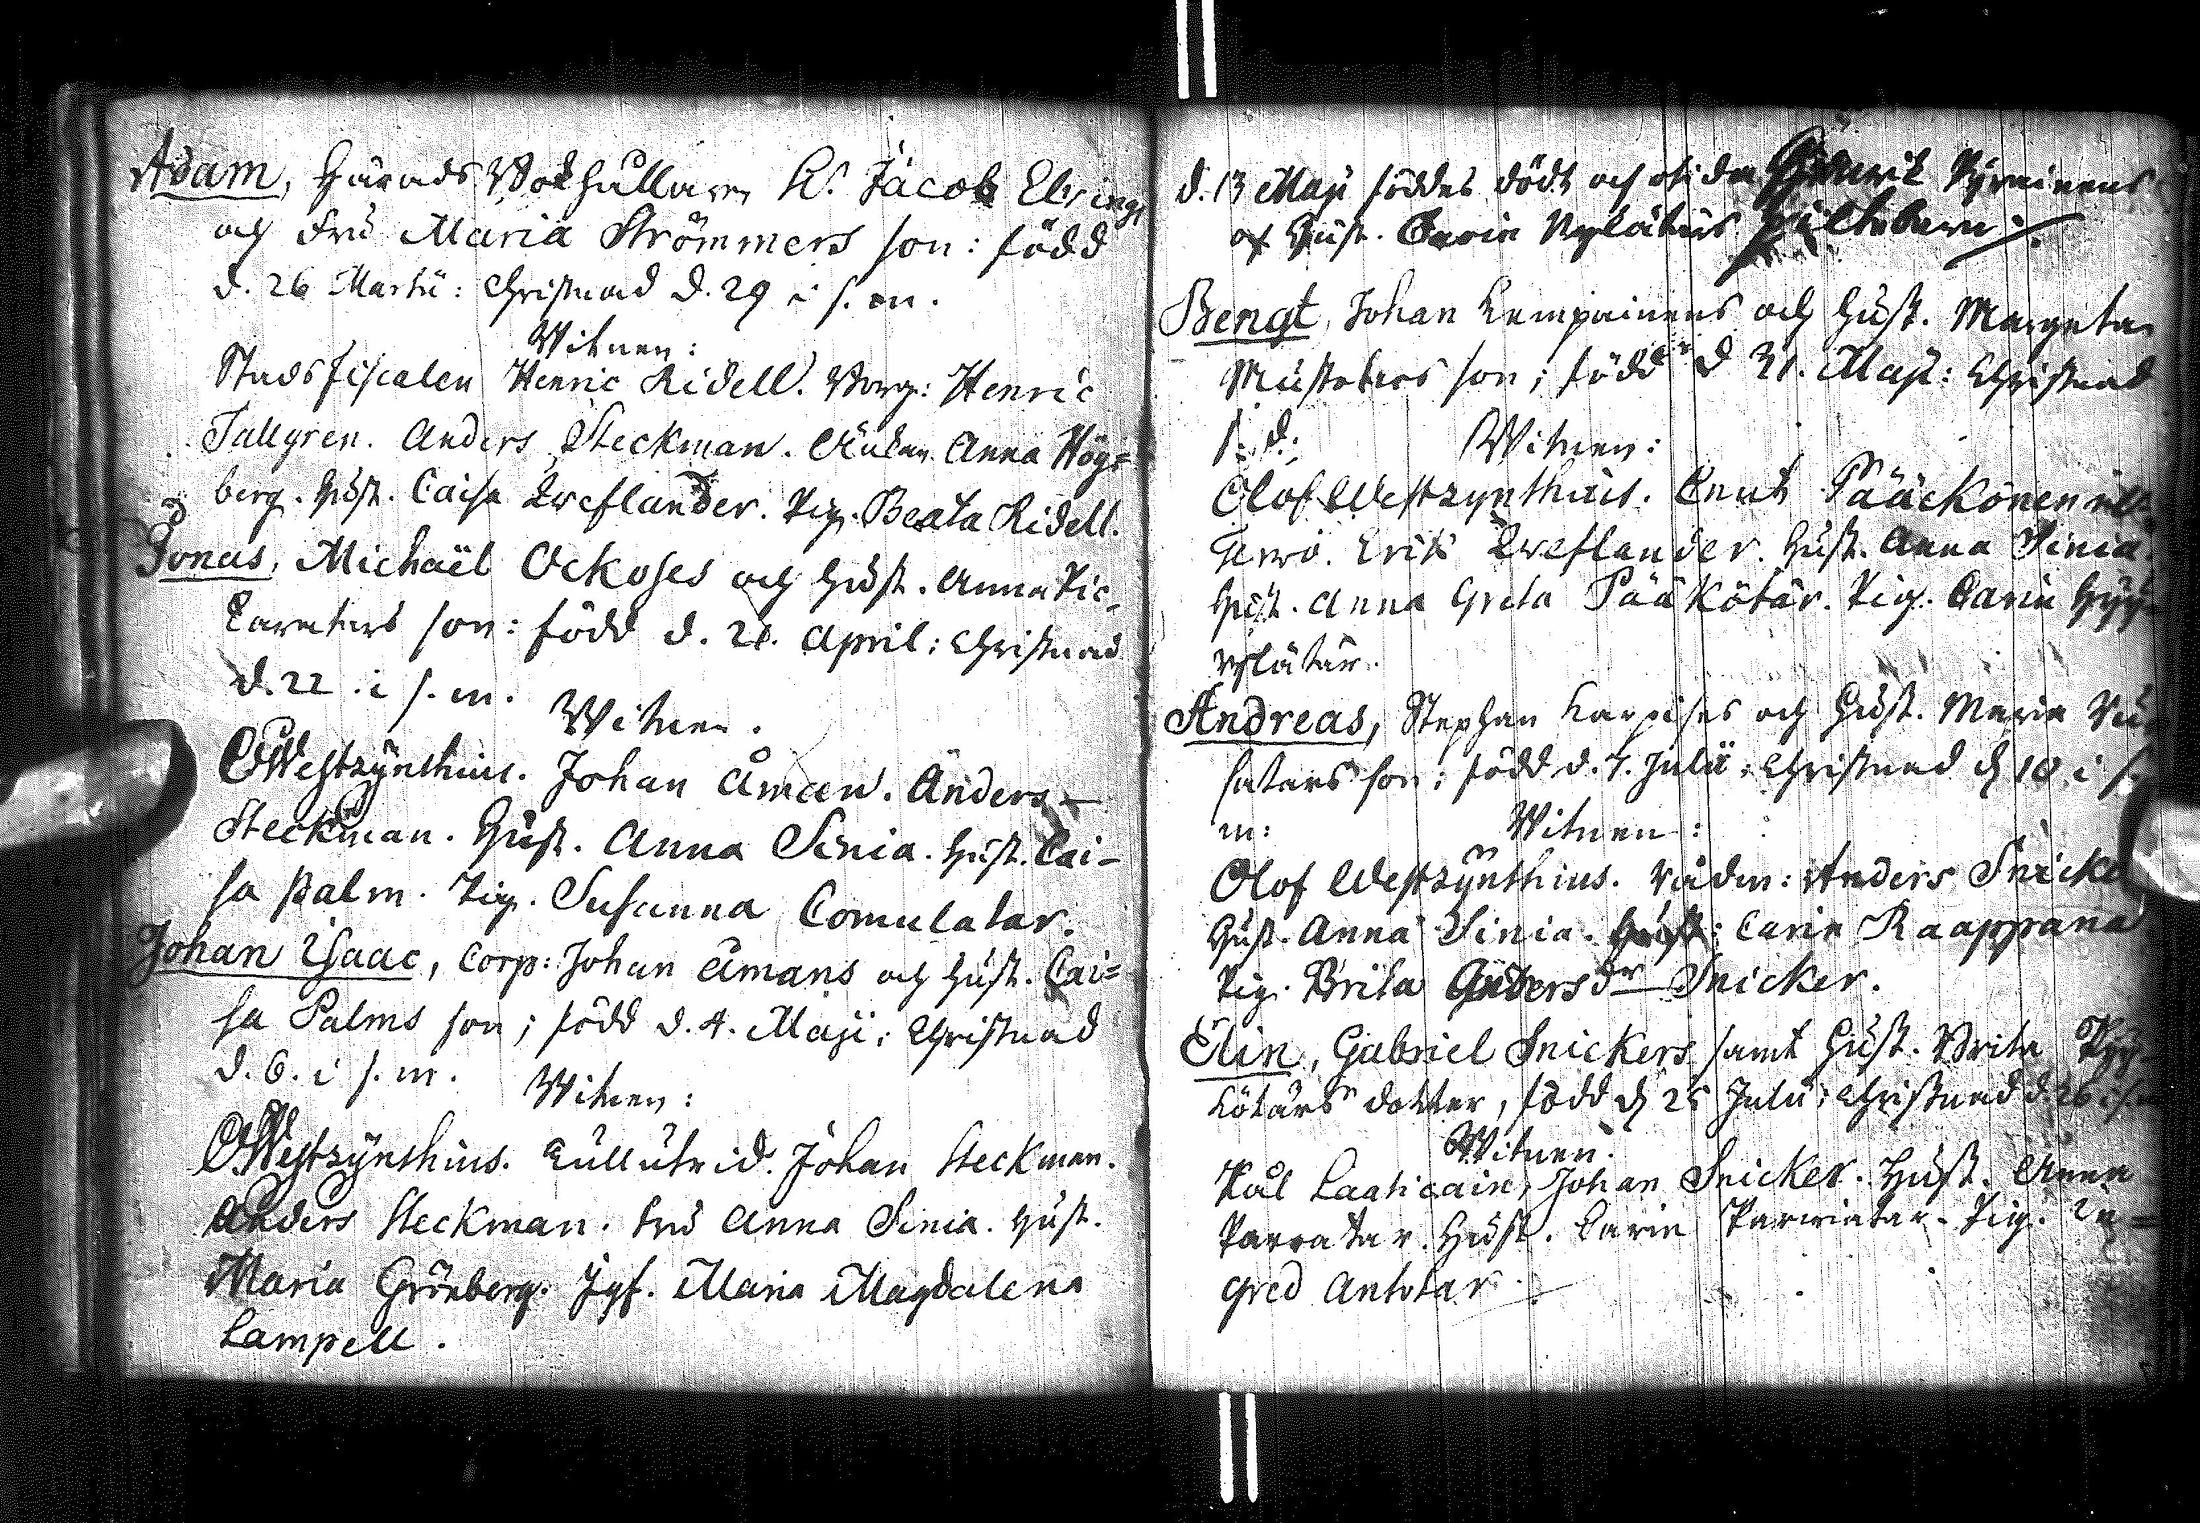 Adam, Härads Bokhållaren H. Jacob Elvings
och Fru Maria Strömmers son: född
d. 26 Martii: Christnad d. 29 i s. m.
Witnen:
Stadsfiscalen Henric Ridell. Borg: Henric
Tallgren. Anders Steckman. Enkan Anna Hög=
berg. Hust. Caisa Qveflander. Pig. Beata Ridell.
Jonas, Michaël Ockoses och Hust. Anna Pic-
karatars son: född d. 21. April: Christnad
d. 22 i s. m.
Witnen.
OWestzynthius. Johan Åman. Anders
Steckman. Hust. Anna Sinia. Hust. Cai-
sa Palm. Pig. Susanna Comulatar.
Johan Isaac, Corp: Johan Åmans och Hust. Cai=
sa Palms son; född d. 4. Maji: Christnad
d. 6. i s. m.
Witnen:
OWestzynthius. Johan Steckman.
Anders Steckman. Fru Anna Sinia. Hust.
Maria Grönberg. Jgf. Maria Magdalena
Lampell.
d. 13 Maji föddes dödt och Henrik Pyrainens
och Hust. Carin
Bengt, Johan Kempainens och Hust. Margeta
Mustatars son; född d 31. Maji: Christnad
s. d. Witnen:
Olof Westzynthius. Cnut Pääckönen
Erik Qveflander. Hust. Anna Sinia.
Hust. Anna Greta Pääkötär. Pig. Carin Hyy-
rylätär.
Andreas, Stephan Karpises och Hust. Maria
satars son; född d. 7. Julii, Christnad d 10 i s.
m: Witnen:
Olof Westzynthius. Rådm: Anders Snicker
Hust. Anna Sinia. Hust: Carin Raappana
Pig. Brita Andersdr Snicker.
Elin, Gabriel Snickers samt Hust. Brita
kötärs dotter, född d 25 Julii; Christnad d. 26 i s. m
Witnen.
Pål Laaticain, Johan Snicker. Hust. Anna
Parratar. Hust. Carin Parviatar. Pig. In=
gred Antotar